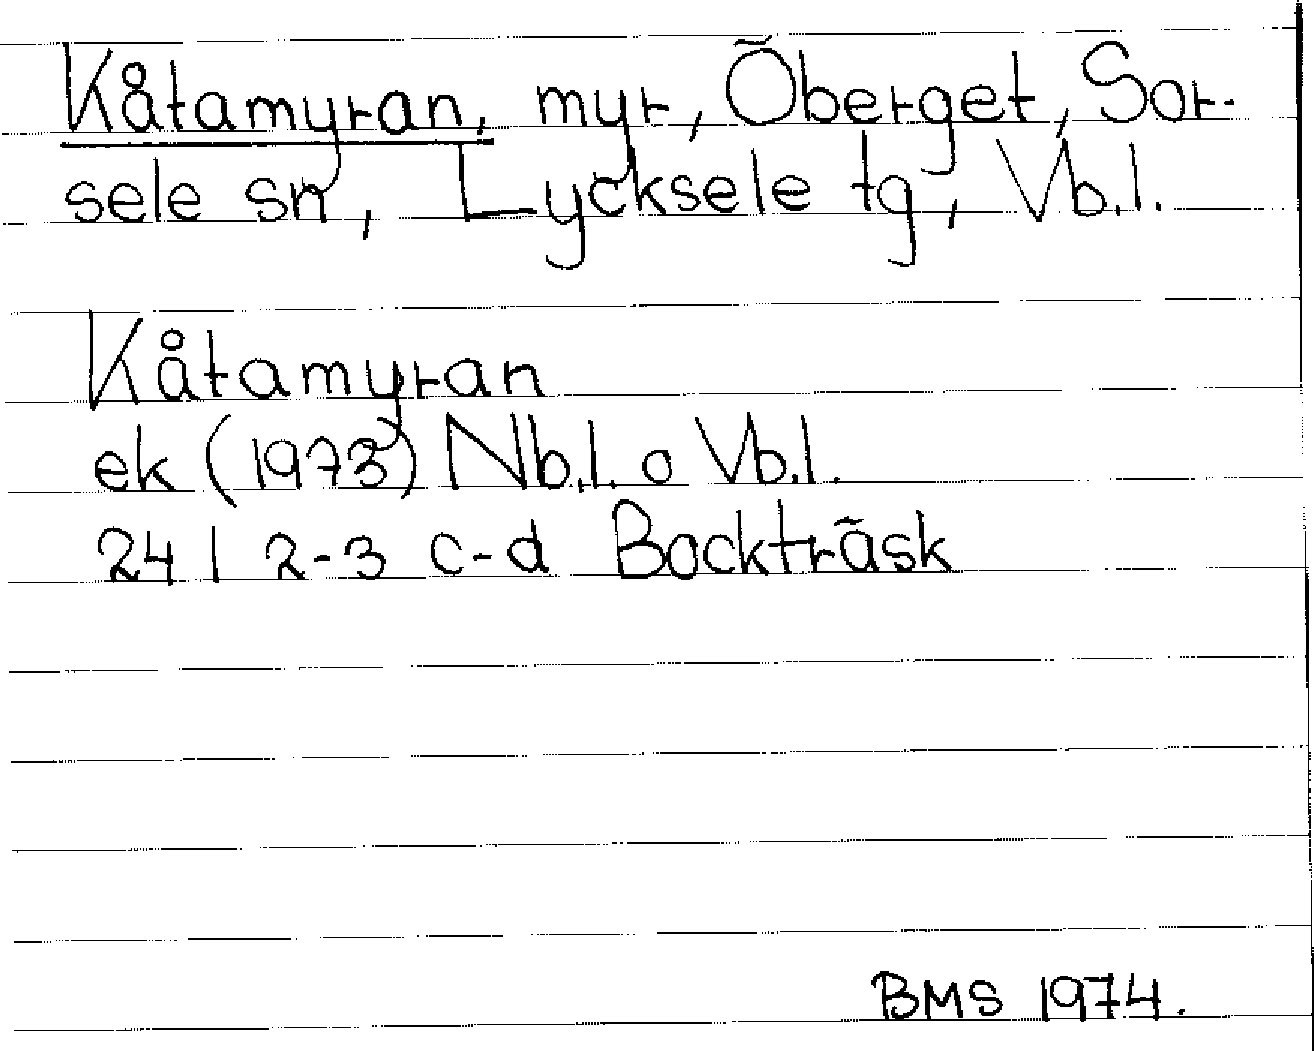 Kåtamyran, myr, Öberget, Sor-
sele sn, Lycksele tg, Vb.l.
Kåtamyran
ek (1973) Nb.l. o Vb.l.
24 I 2-3 c-d Bockträsk
BMS 1974.